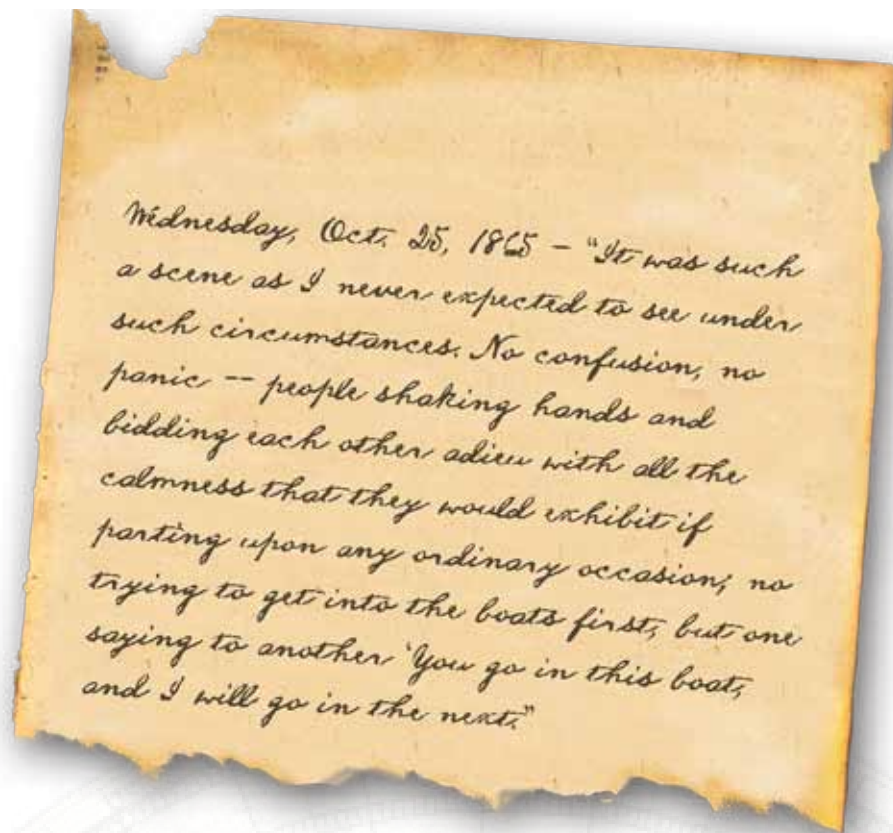 Wednesday, Oct. 25, 1865 – "It was such
a scene as I never expected to see under
such circumstances. No confusion, no
panic -- people shaking hands and
bidding each other adieu with all the
calmness that they would exhibit if
parting upon any ordinary occasion; no
trying to get into the boats first, but one
saying to another 'You go in this boat,
and I will go in the next."